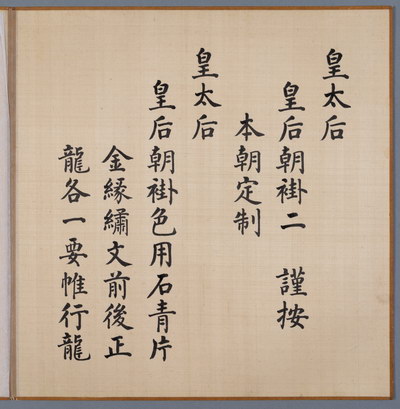 皇太后
皇后朝褂二 謹按
本朝定制
皇太后
皇后朝褂色用石青片
金緣繡文前後正
龍各一要帷行龍